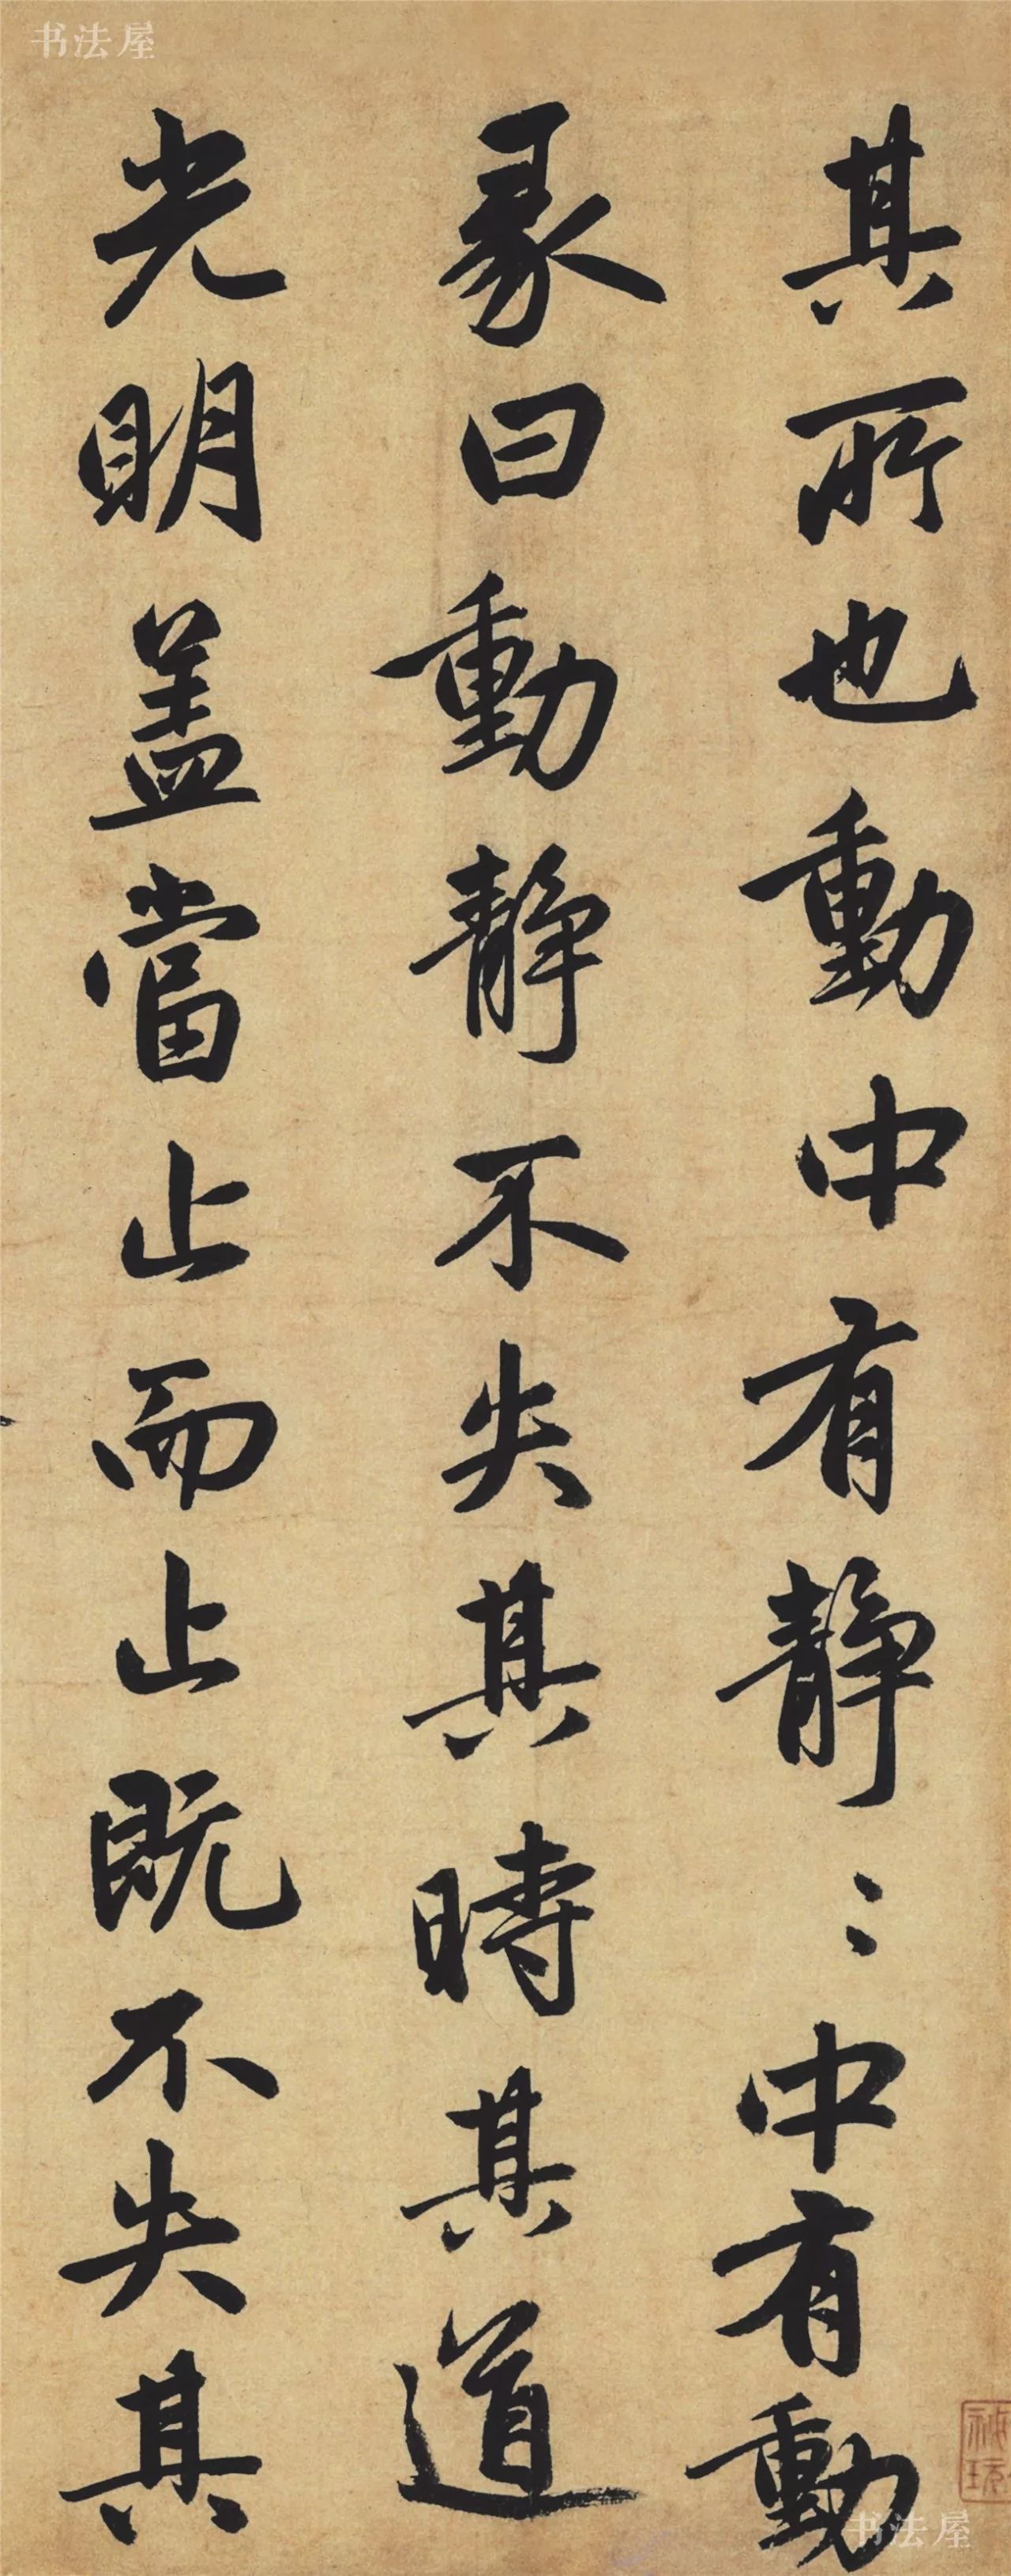 书法屋
其所也動中有静〻中有動
彖曰動静不失其時其道
光明盖當止而止既不失其
书法屋